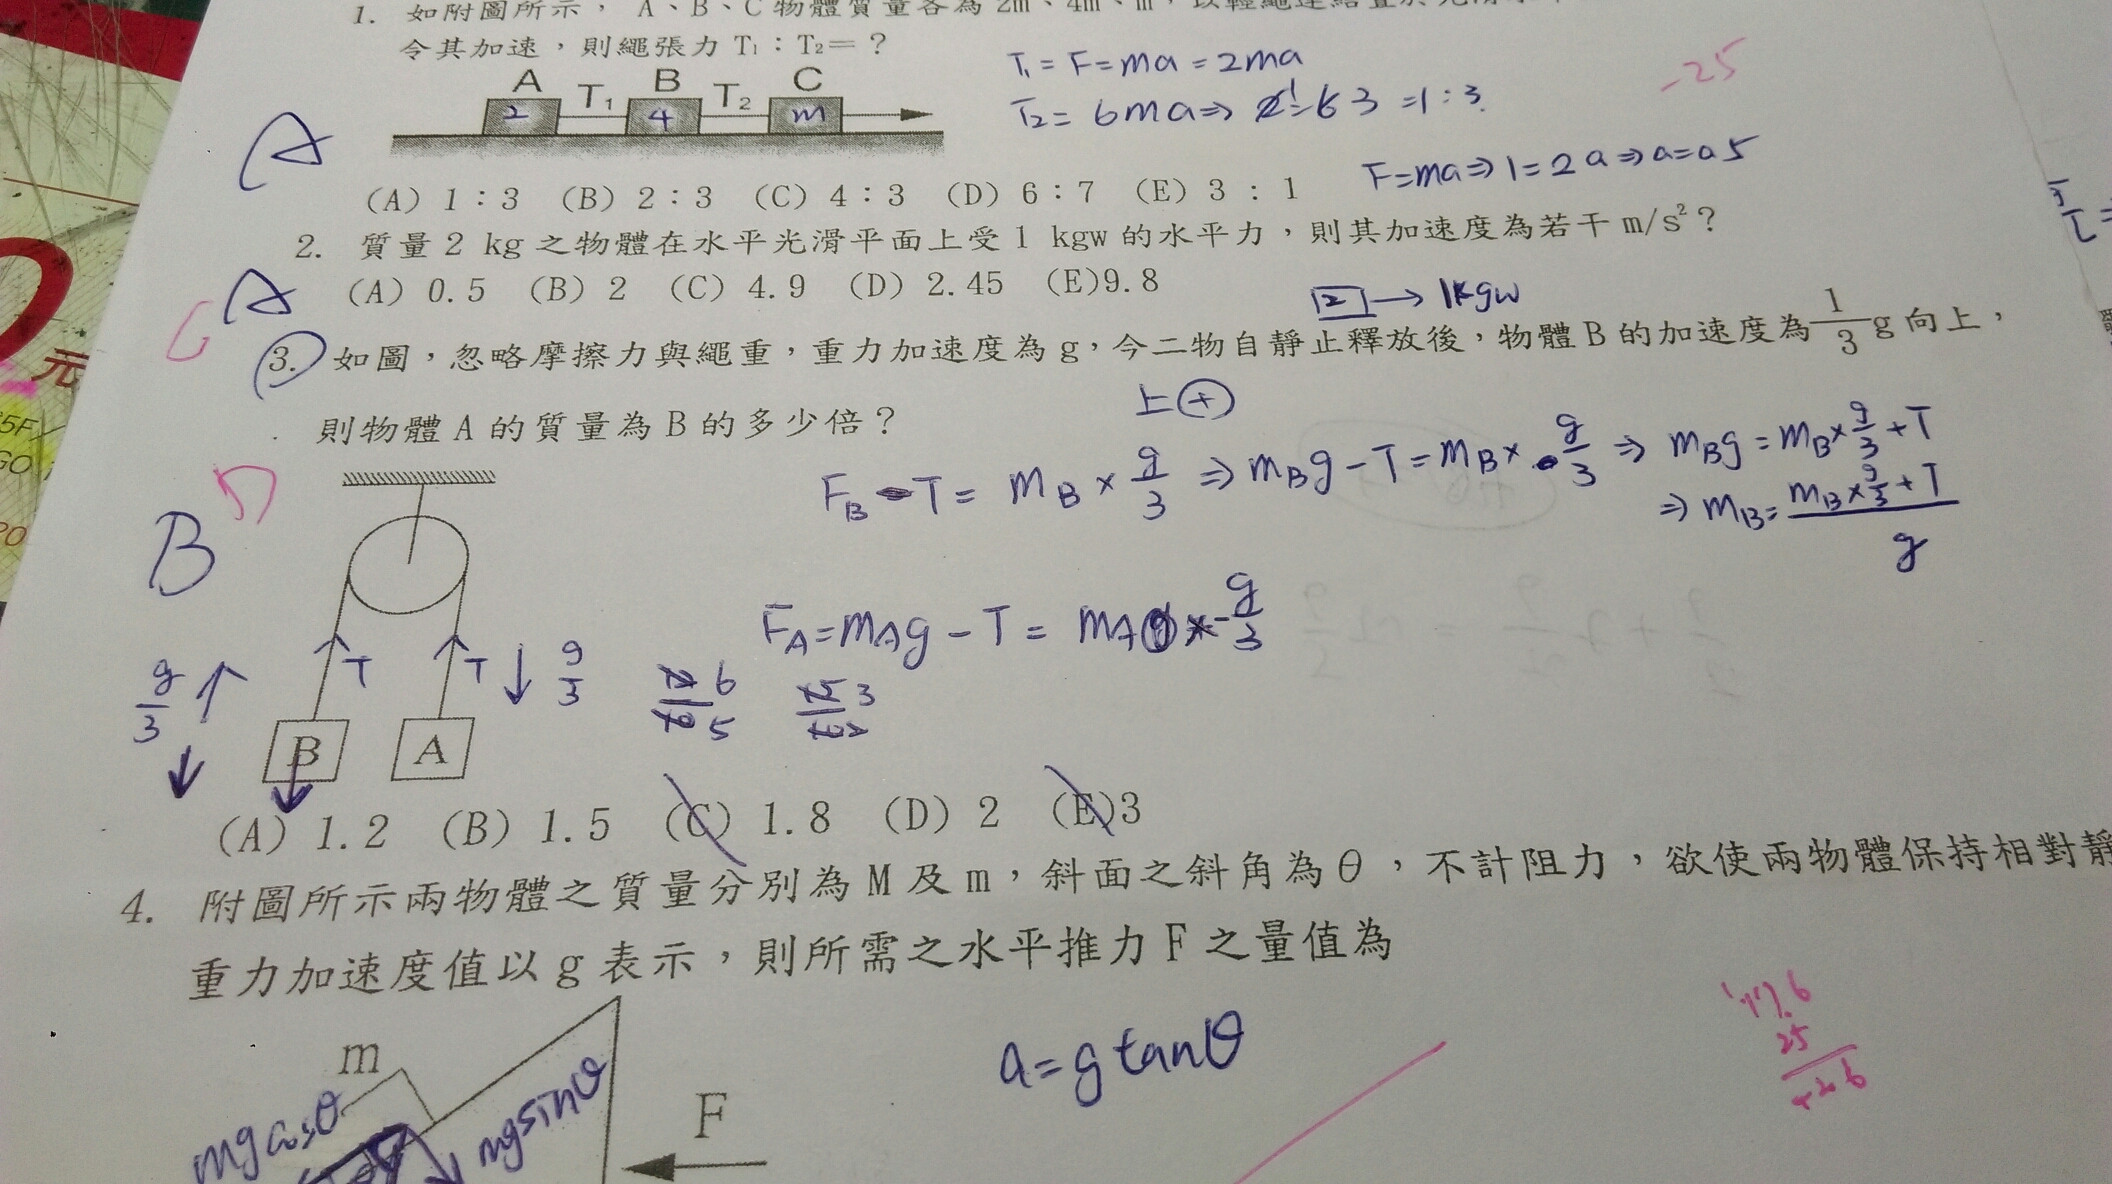 1. 如附圖所示, A、B、C物體質量各為2m、4m、m,以輕繩連結置於光滑水平
令其加速,則繩張力 T₁:T₂=?
T₁ = F = ma = 2ma
-25
A T₁ B T₂ C
2 4 m
T₂ = 6ma ⇒ 3 = 1:3
A
F=ma ⇒ 1=2a ⇒ a=0.5
(A) 1:3 (B) 2:3 (C) 4:3 (D) 6:7 (E) 3 : 1
2. 質量 2 kg 之物體在水平光滑平面上受 1 kgw 的水平力,則其加速度為若干 m/s²?
A
C
(A) 0.5 (B) 2 (C) 4.9 (D) 2.45 (E)9.8
2 → 1kgw
3. 如圖,忽略摩擦力與繩重,重力加速度為 g,今二物自靜止釋放後,物體 B 的加速度為 1/3 g 向上,
上 +
則物體 A 的質量為 B 的多少倍?
F_B - T = m_B × g/3 ⇒ m_B g - T = m_B × g/3 ⇒ m_B g = m_B × g/3 + T
⇒ m_B = (m_B × g/3 + T) / g
B
D
F_A = m_A g - T = m_A × -g/3
g/3 ↑ T T ↓ g/3
6/5 3/2
B A
(A) 1.2 (B) 1.5 (C) 1.8 (D) 2 (E)3
4. 附圖所示兩物體之質量分別為 M 及 m,斜面之斜角為 θ ,不計阻力,欲使兩物體保持相對靜
重力加速度值以 g 表示,則所需之水平推力 F 之量值為
a = g tanθ
m
F
mg cosθ
mg sinθ
25
元